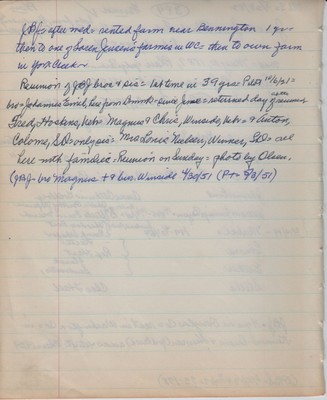 after med = rented farm near Bennington 1 yr =
then to one of Soren Jensen's farms in WC = then to own farm
in York Creek =
Reunion of bros & sis = 1st time in 39 yrs = Pilot
bro = Johannes Emil, here from Denmark = since June = returned day of reunion
Fred, Hoskins, Nebr = Magnus & Chris, Winside, Nebr = & Anton,
Colome, S.D = only sis = Mrs Louis Nielsen, Winner, S.D = all
here with families = Reunion on Sunday = photo by Olson.
bro Magnus + 9 bros. Winside 4/30/51 (P+ 5/2/51)